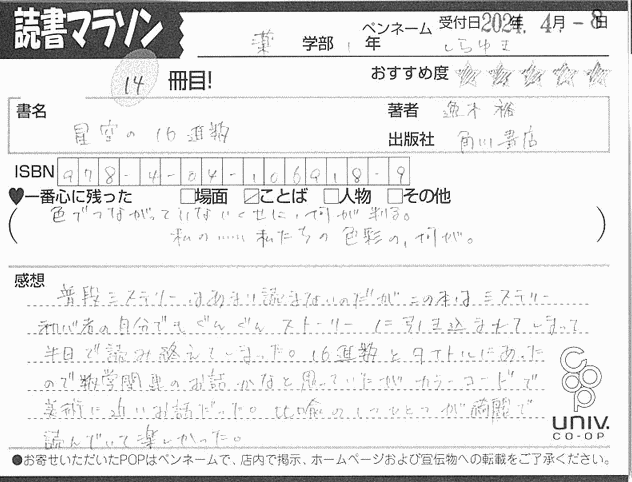 読書マラソン
薬 学部 1 年 ペンネーム しらゆき 受付日 2024年 4月-8日
14 冊目! おすすめ度 ☆☆☆☆☆
書名 星空の16進数
著者 逸木 裕
出版社 角川書店
ISBN 978-4-04-106918-9
♥一番心に残った □場面 ☑ことば □人物 □その他
(色でつながっていないくせに、何が判る。
私の……私たちの色彩の、何が。)
感想
普段ミステリーはあまり読まないのだがこの本はミステリー
初心者の自分でもぐんぐんストーリーに引き込まれてしまって
半日で読み終えてしまった。16進数とタイトルにあった
ので数学関連のお話かなと思っていたがカラーコードで
美術に近いお話だった。比喩の1つひとつが綺麗で
読んでいて楽しかった。
coop
UNIV.
CO-OP
●お寄せいただいたPOPはペンネームで、店内で掲示、ホームページおよび宣伝物への転載をご了承ください。